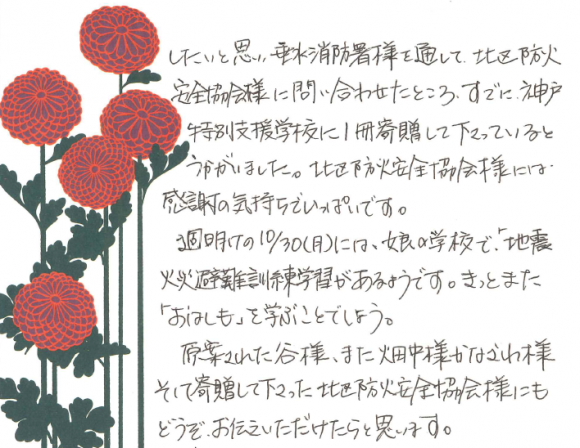 したいと思い、垂水消防署様を通して、北区防火
安全協会様に問い合わせたところ、すでに、神戸
特別支援学校に1冊寄贈して下さっていると
うかがいました。北区防火安全協会様には
感謝の気持ちでいっぱいです。
週明けの10/30(月)には、娘の学校で、「地震
火災避難訓練学習」があるようです。きっとまた
「おはしも」を学ぶことでしょう。
原案された谷様、また畑中様かなざわ様
そして寄贈して下さった北区防火安全協会様にも
どうぞ、お伝えいただけたらと思います。